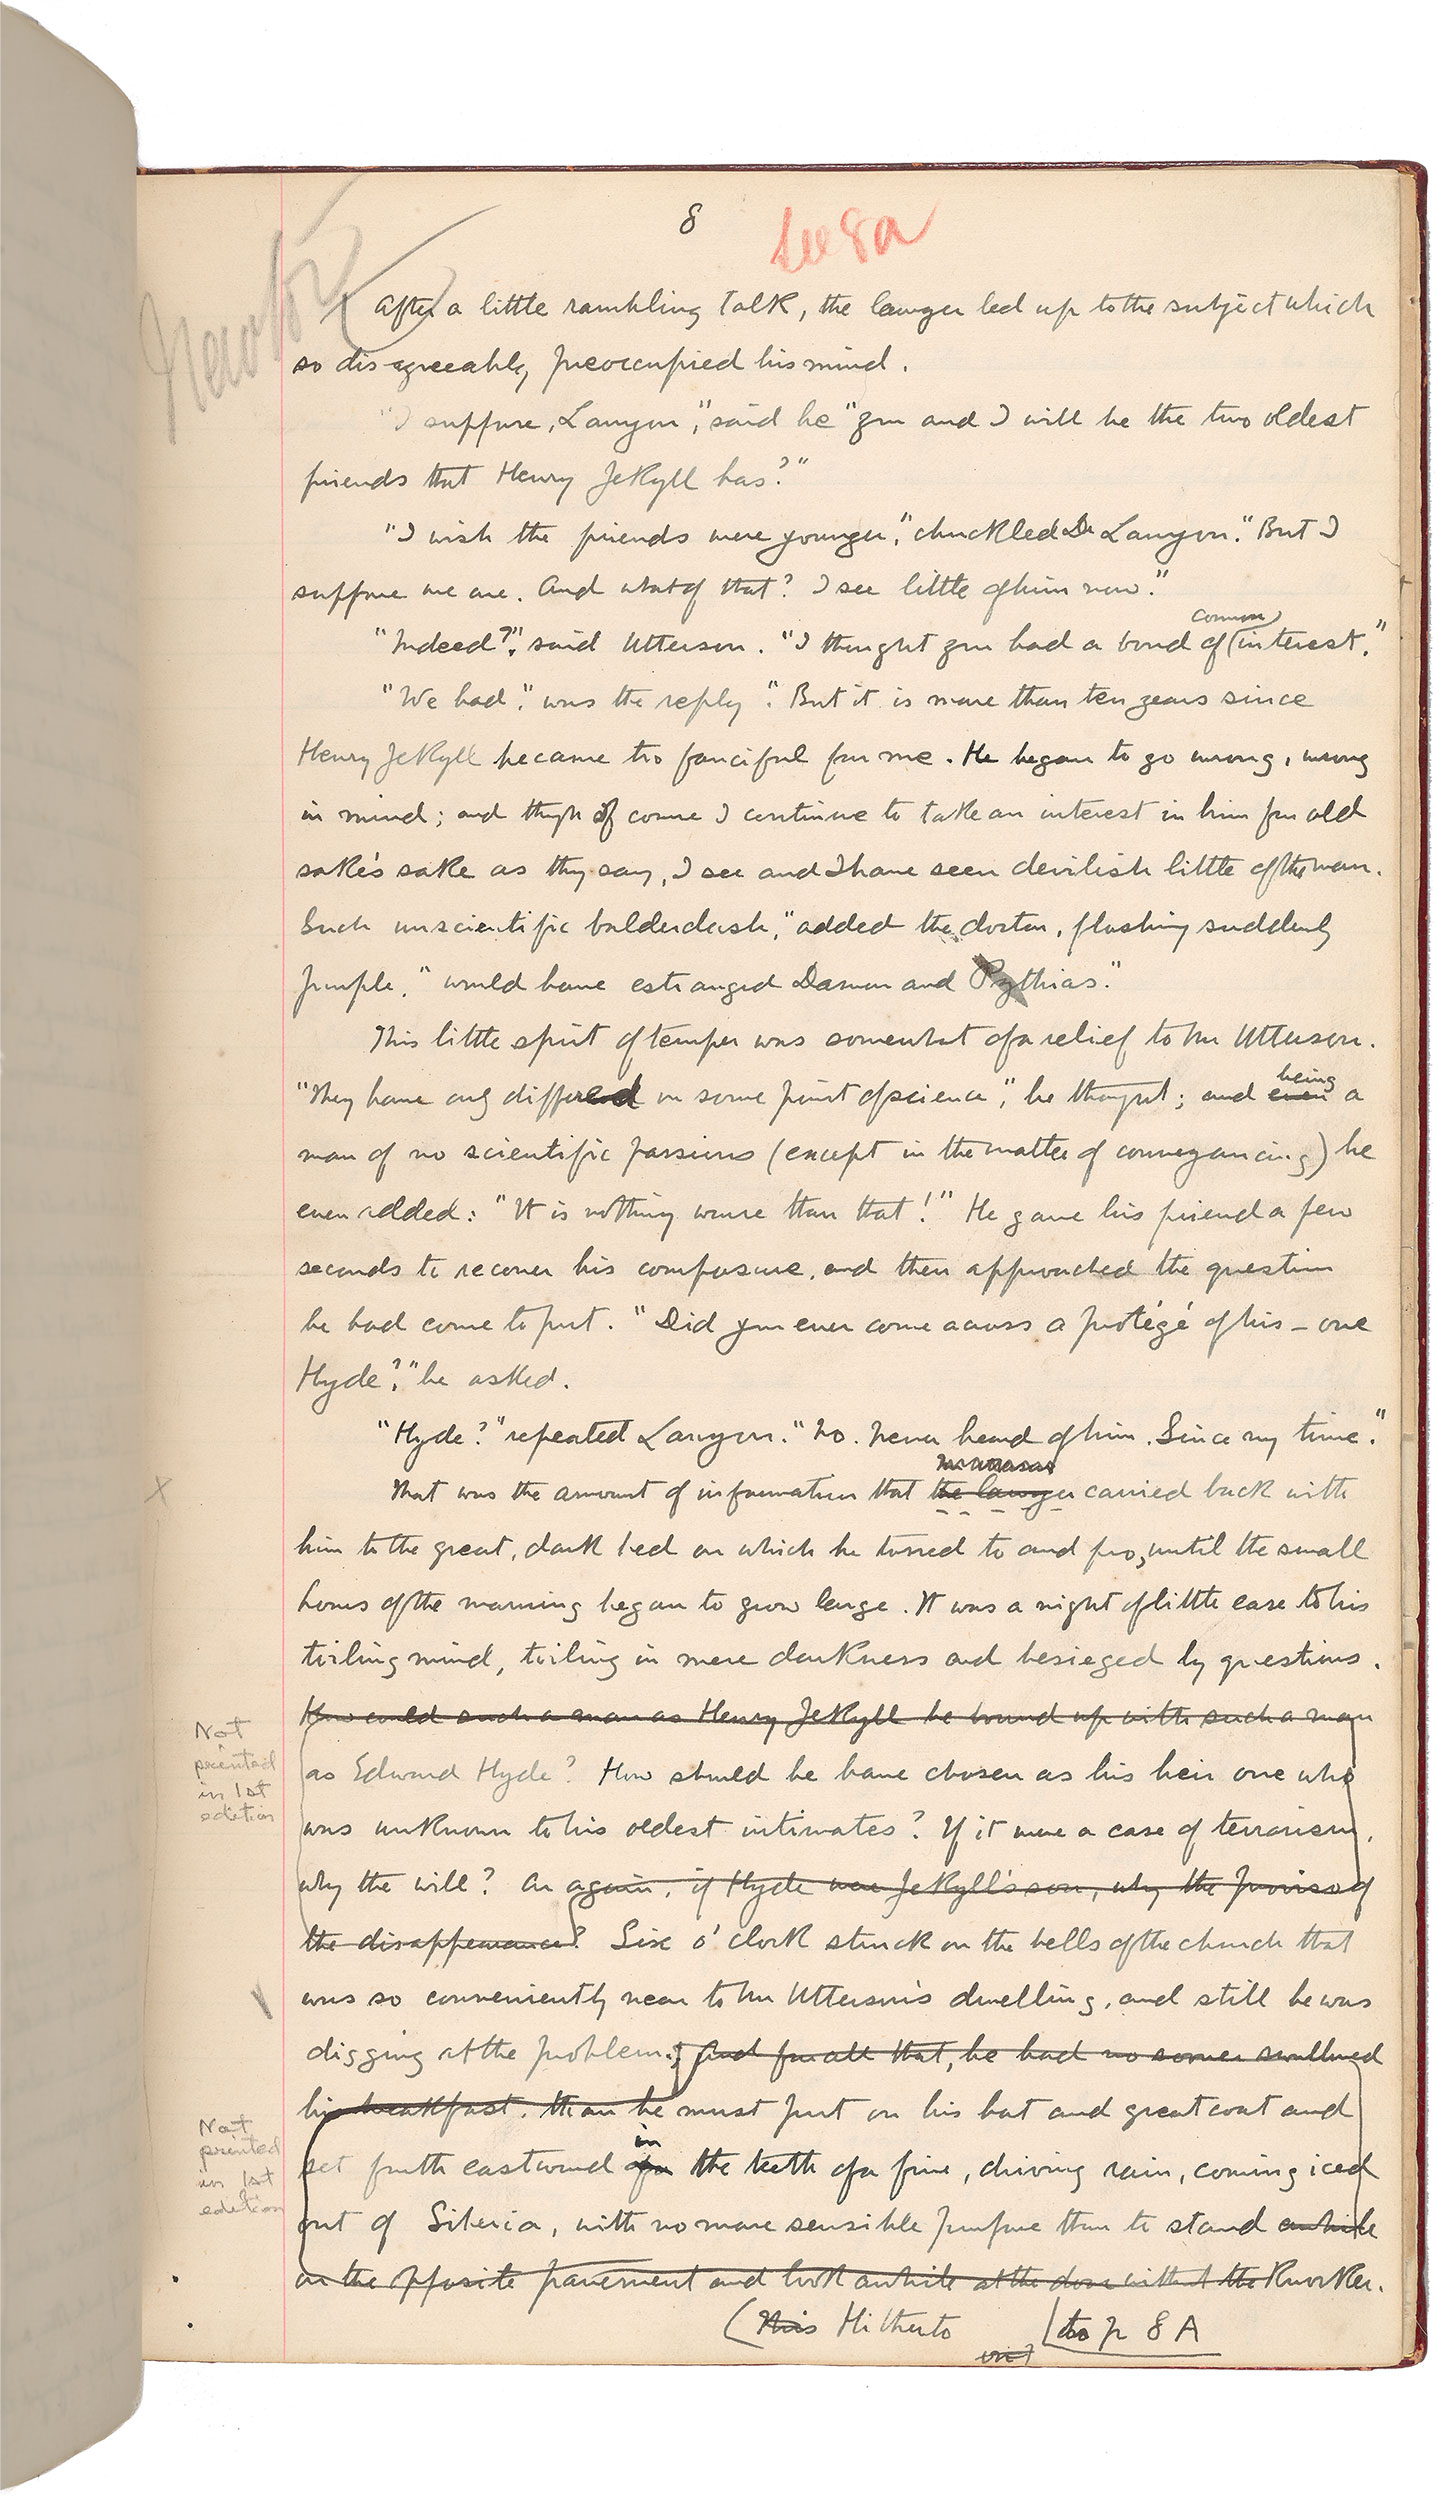 8
see 8a
After a little rambling talk, the lawyer led up to the subject which
so disagreeably preoccupied his mind.
"I suppose, Lanyon," said he "you and I will be the two oldest
friends that Henry Jekyll has?"
"I wish the friends were younger," chuckled Dr Lanyon. "But I
suppose we are. And what of that? I see little of him now."
common
"Indeed?" said Utterson. "I thought you had a bond of interest."
"We had," was the reply. "But it is more than ten years since
Henry Jekyll became too fanciful for me. He began to go wrong, wrong
in mind; and though of course I continue to take an interest in him for old
sake's sake as they say, I see and I have seen devilish little of the man.
Such unscientific balderdash," added the doctor, flushing suddenly
purple, "would have estranged Damon and Pythias."
This little spirt of temper was somewhat of a relief to Mr Utterson.
being
"They have only differed on some point of science", he thought; and even a
man of no scientific passions (except in the matter of conveyancing) he
even added: "It is nothing worse than that!" He gave his friend a few
seconds to recover his composure, and then approached the question
he had come to put. "Did you ever come across a protégé of his – one
Hyde?," he asked.
"Hyde?" repeated Lanyon. "No. Never heard of him. Since my time."
That was the amount of information that the lawyer carried back with
him to the great, dark bed on which he tossed to and fro, until the small
hours of the morning began to grow large. It was a night of little ease to his
toiling mind, toiling in mere darkness and besieged by questions.
How could such a man as Henry Jekyll be bound up with such a man
Not
printed
in 1st
edition
as Edward Hyde? How should he have chosen as his heir one who
was unknown to his oldest intimates? If it were a case of terrorism,
why the will? Or again, if Hyde were Jekyll's son, why the proviso of
the disappearance? Six o'clock struck on the bells of the church that
was so conveniently near to Mr Utterson's dwelling, and still he was
digging at the problem; And for all that, he had no sooner swallowed
his breakfast, than he must put on his hat and greatcoat and
Not
printed
in 1st
edition
in
set forth eastward the teeth of a fine, driving rain, coming iced
out of Siberia, with no more sensible purpose than to stand awhile
on the opposite pavement and look awhile at the door without the knocker.
(This Hitherto
to p 8A